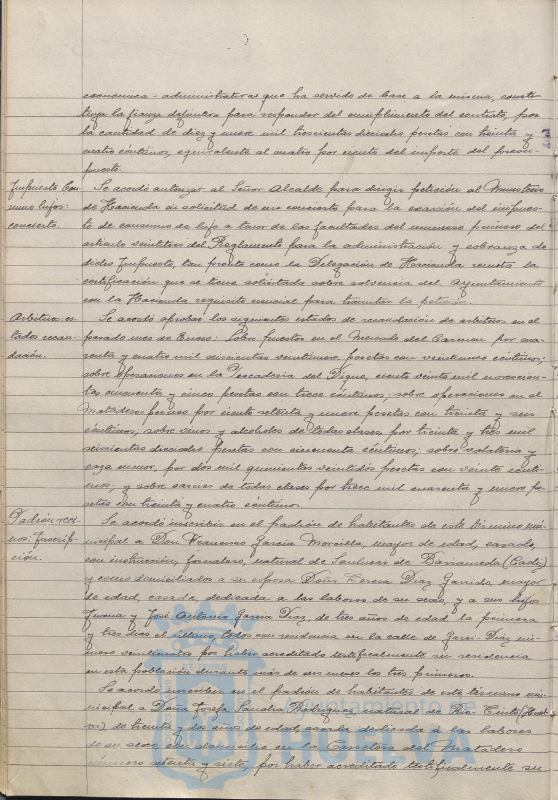 económico-administrativas que ha servido de base a la misma, consti-
tuya la fianza definitiva para responder del cumplimiento del contrato, por
la cantidad de diez y nueve mil trescientas dieciocho pesetas con treinta y
cuatro céntimos, equivalente al cuatro por ciento del importe del presu-
puesto.
Impuesto Con-
sumo lujo:
concierto.
Se acordó autorizar al Señor Alcalde para dirigir petición al Ministerio
de Hacienda en solicitud de un concierto para la exacción del impues-
to de consumos de lujo a tenor de las facultades del número primero del
artículo veintitres del Reglamento para la administración y cobranza de
dicho Impuesto, tan pronto como la Delegación de Hacienda remita la
certificación que se tiene solicitada sobre solvencia del Ayuntamiento
con la Hacienda requisito esencial para tramitar la petición.
Arbitrios: es-
tados recau-
dación.
Se acordó aprobar los siguientes estados de recaudación de arbitrios en el
pasado mes de Enero: Sobre puestos en el Mercado del Carmen por cua-
renta y cuatro mil seiscientas veintinueve pesetas con veintinueve céntimos;
sobre operaciones en la Pescadería del Dique, ciento veinte mil novecien-
tas cuarenta y cinco pesetas con trece céntimos; sobre operaciones en el
Matadero por ciento setenta y nueve pesetas con treinta y seis
céntimos; sobre vinos y alcoholes de todas clases por treinta y tres mil
seiscientas dieciocho pesetas con cincuenta céntimos; sobre volatería y
caza menor, por dos mil quinientas veintidós pesetas con veinte cénti-
mos; y sobre carnes de todas clases por trece mil cuarenta y nueve pe-
setas con treinta y cuatro céntimos.
Padrón veci-
nos: Inscrip-
ción.
Se acordó inscribir en el padrón de habitantes de este término mu-
nicipal a Don Francisco García Morcilla, mayor de edad, casado,
con instrucción, jornalero, natural de Sanlucar de Barrameda (Cádiz)
y como domiciliados a su esposa Doña Teresa Díaz Garrido, mayor
de edad, casada, dedicada a las labores de su sexo, y a sus hijos
Juana y José Antonio García Díaz, de tres años de edad la primera
y tres días el último, todos con residencia en la calle de Garci-Díaz nú-
mero veintinueve por haber acreditado testificalmente su residencia
en esta población durante más de seis meses los tres primeros.
Se acordó inscribir en el padrón de habitantes de este término mu-
nicipal a Doña Josefa Sanabra Rodríguez, natural de Rio-Tinto (Huel-
va) de treinta y dos años de edad, casada, dedicada a las labores
de su sexo, con domicilio en la Carretera del Matadero
número setenta y siete, por haber acreditado testificalmente su
Ayuntamiento de
HUELVA